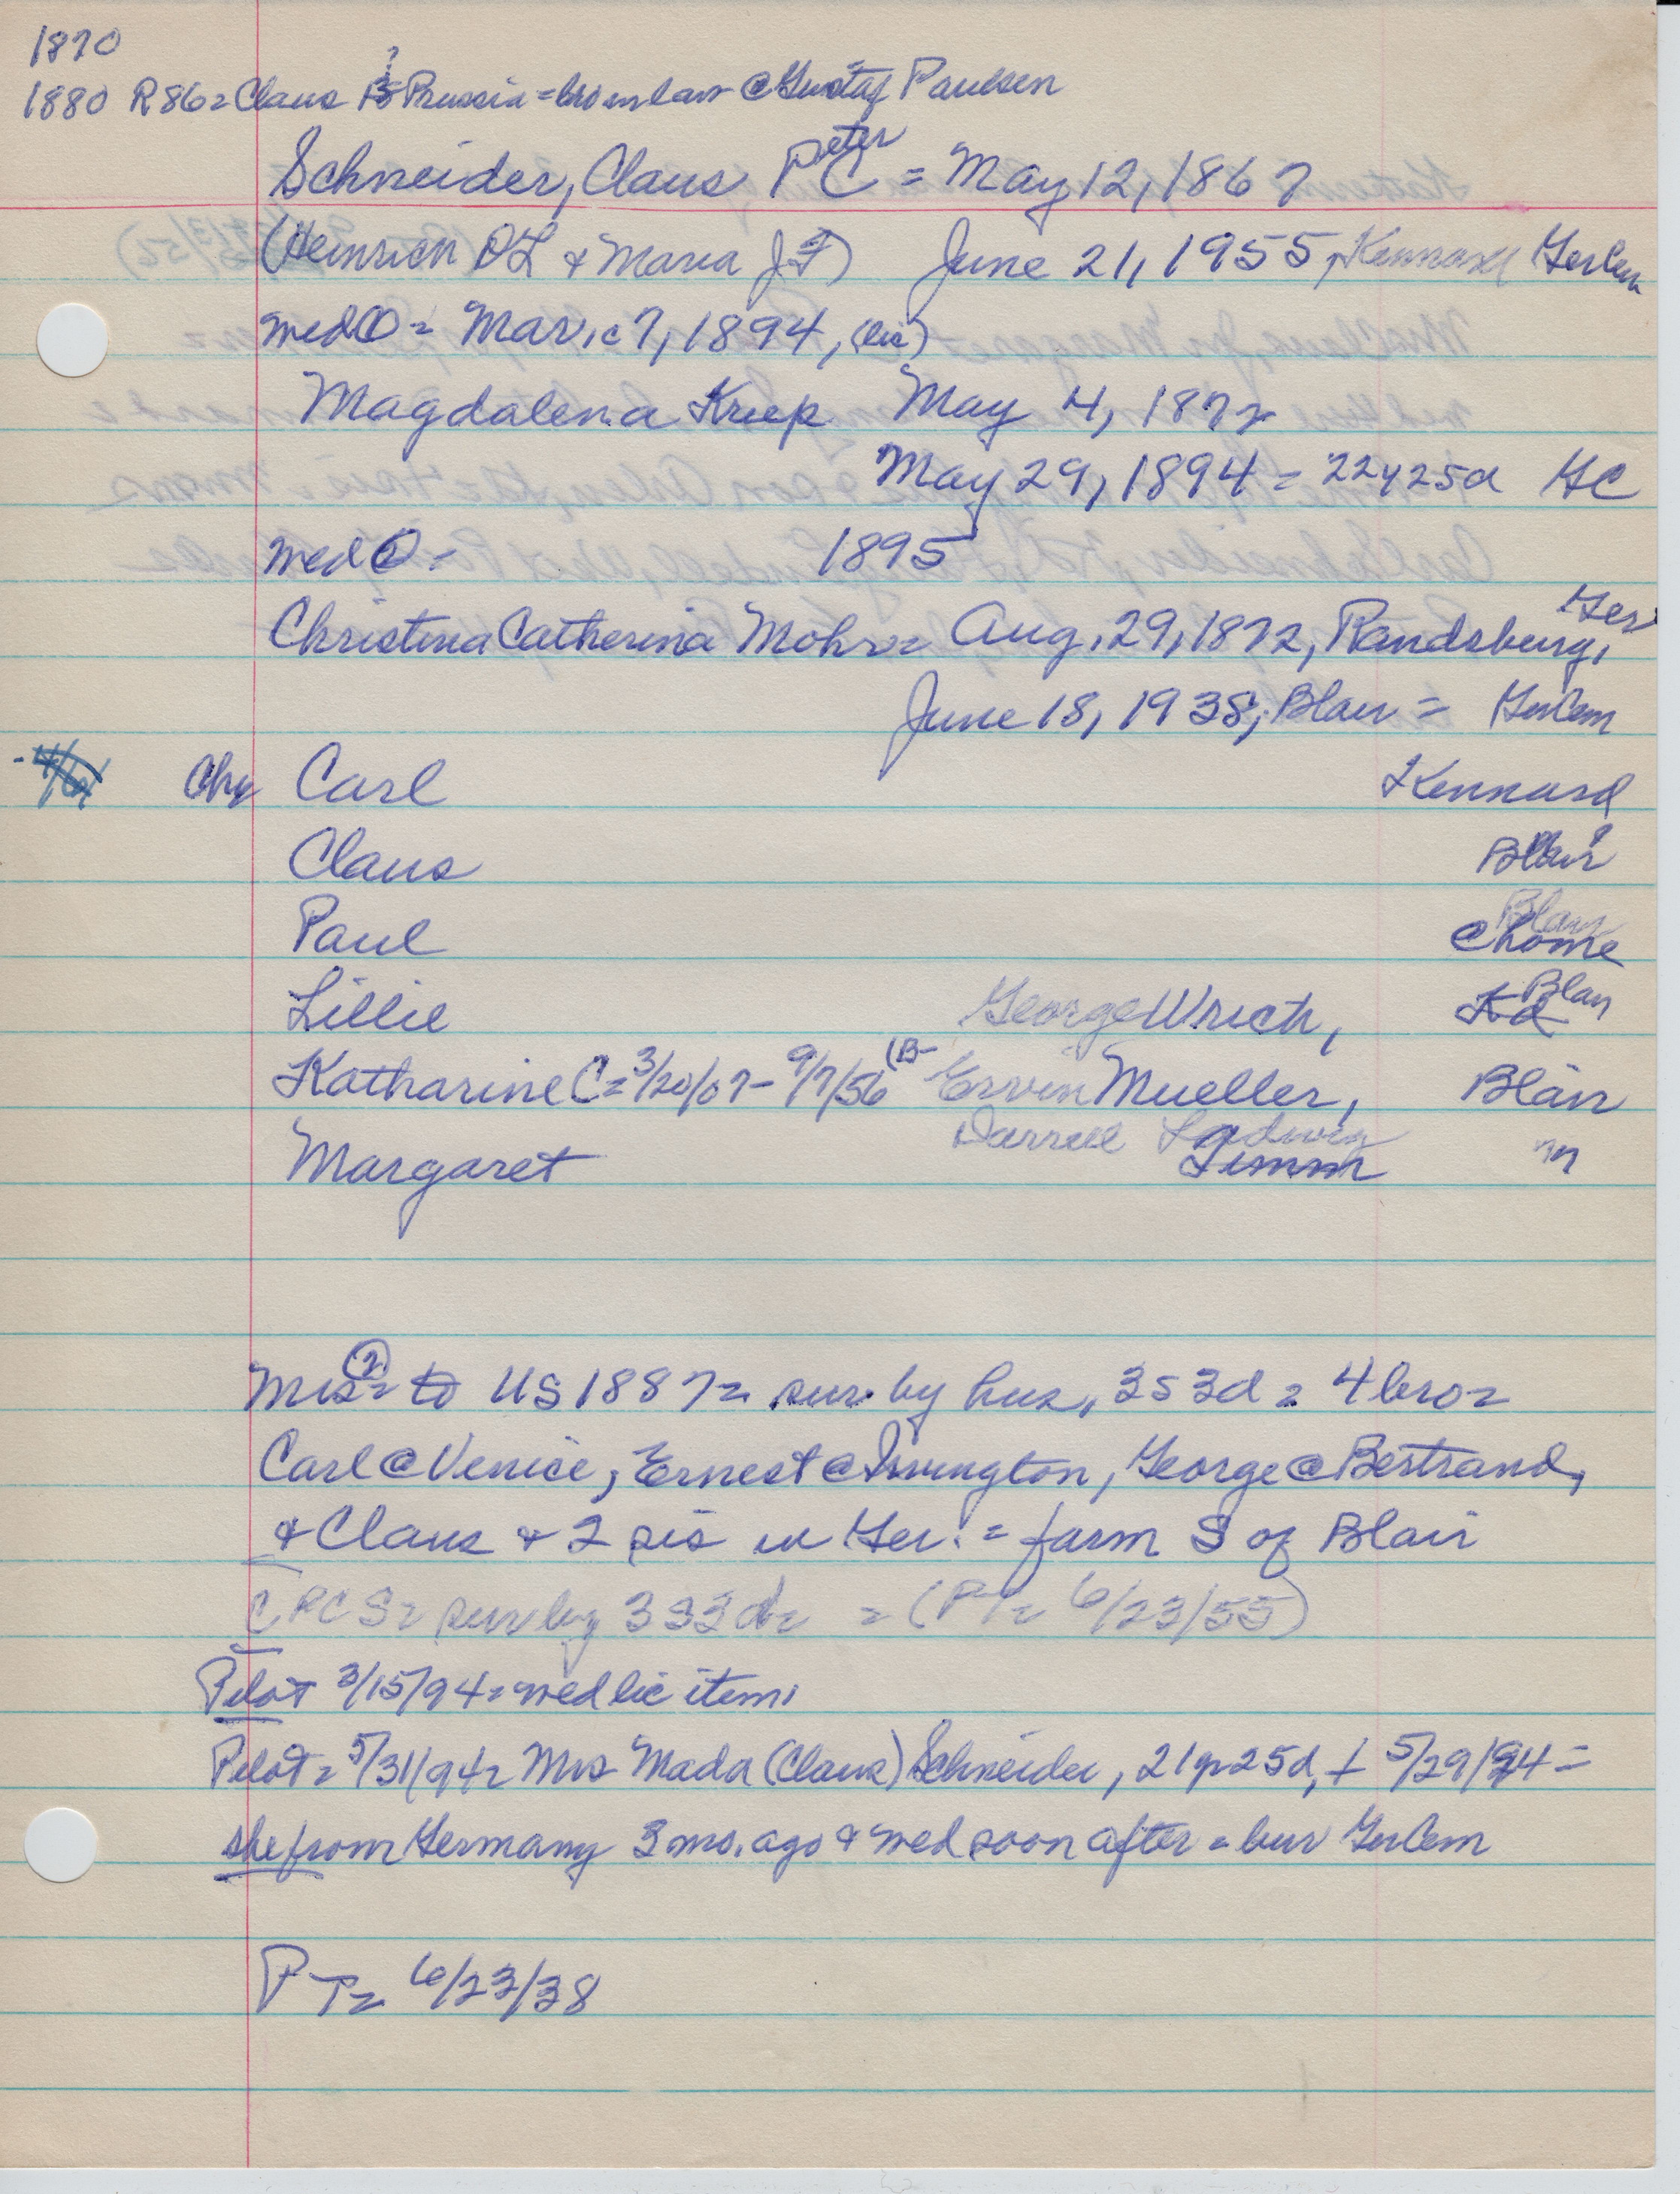 1870
1880 R86= Claus B? Prussia = bro in law @ Gustaf Paulsen
Schneider, Claus Peter C = May 12, 1867
(Heinrich DL & Maria JF) June 21, 1955, Kennard GerCem
wed ① = Mar. c7, 1894, (lic)
Magdalena Kruep May 4, 1872
May 29, 1894 = 22y25d GC
wed ② - 1895
Christina Catherina Mohr = Aug. 29, 1872, Randsburg, Ger
June 18, 1938, Blair = GerCem
Chn Carl Kennard
Claus Blair
Paul Blair @ home
Lillie George Wrich, Kd Blair
Katharine C = 3/20/07 - 9/7/56 (B- Ervin Mueller, Blair
Darrell Ladwig
Margaret Timm "
Mrs ② = to US 1887 = sur. by hus, 3s3d = 4 bro =
Carl @ Venice, Ernest @ Irvington, George @ Bertrand,
& Claus & 2 sis in Ger. = farm S of Blair
CPCS = sur by 3s3d = = (PT = 6/23/55)
Pilot 3/15/94 = wed lic item
Pilot = 5/31/94 = Mrs Mada (Claus) Schneider, 21y25d, + 5/29/94 =
she from Germany 3 mo. ago & wed soon after = bur GerCem
PT = 6/23/38